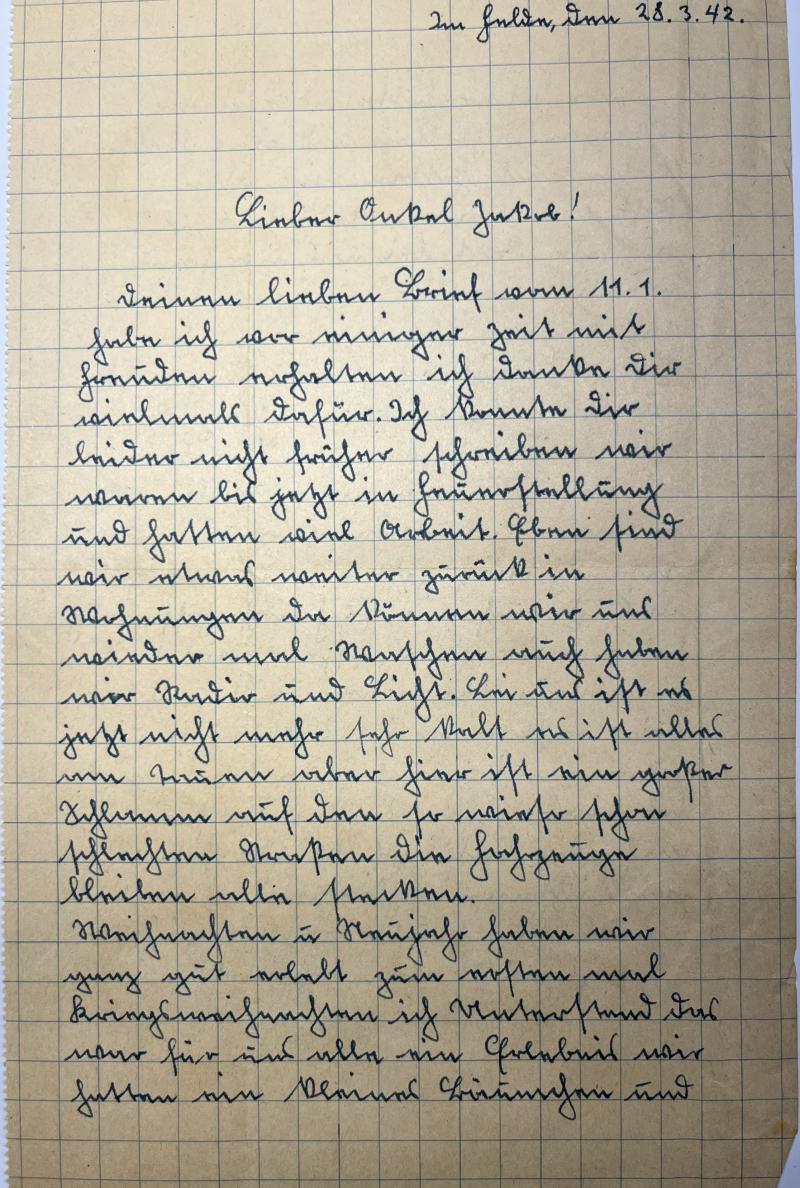 Im Felde, den 28.3.42.
Lieber Onkel Jakob!
Deinen lieben Brief vom 11.1.
habe ich vor einiger Zeit mit
Freuden erhalten ich danke Dir
vielmals dafür. Ich konnte Dir
leider nicht früher schreiben wir
waren bis jetzt in Feuerstellung
und hatten viel Arbeit. Eben sind
wir etwas weiter zurück in
Wohnungen da können wir uns
wieder mal Waschen auch haben
wir Radio und Licht. Bei uns ist es
jetzt nicht mehr sehr kalt es ist alles
am Tauen aber hier ist ein großer
Schlamm auf den so wieso schon
schlechten Straßen die Fahrzeuge
bleiben alle stecken.
Weihnachten u Neujahr haben wir
ganz gut erlebt zum ersten mal
Kriegsweihnachten ich Unterstand das
war für uns alle ein Erlebnis wir
hatten ein kleines Bäumchen und